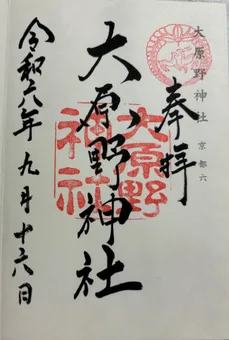 大原野神社 京都六
奉拝
大原野神社
大原野
神社
令和六年九月十六日